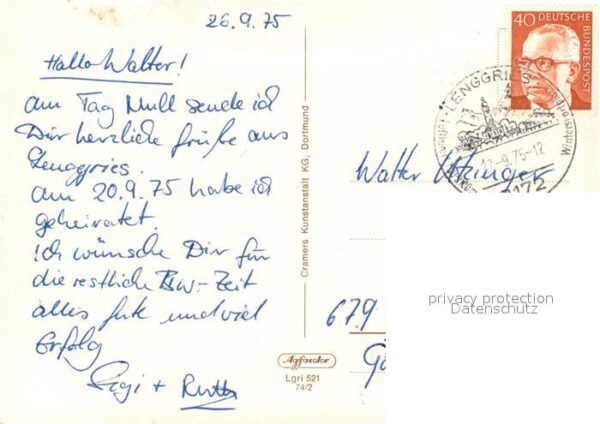 26.9.75
Hallo Walter!
am Tag Null sende ich
Dir herzliche Grüße aus
Lenggries.
am 20.9.75 habe ich
geheiratet.
Ich wünsche Dir für
die restliche Bw-Zeit
alles gute und viel
Erfolg
Sigi + Ruth
Cramers Kunstanstalt KG, Dortmund
Agfacolor
Lgri 521
74/2
40 DEUTSCHE BUNDESPOST
LENGGRIES
-9.75-12
8172
Walter
679
privacy protection
Datenschutz